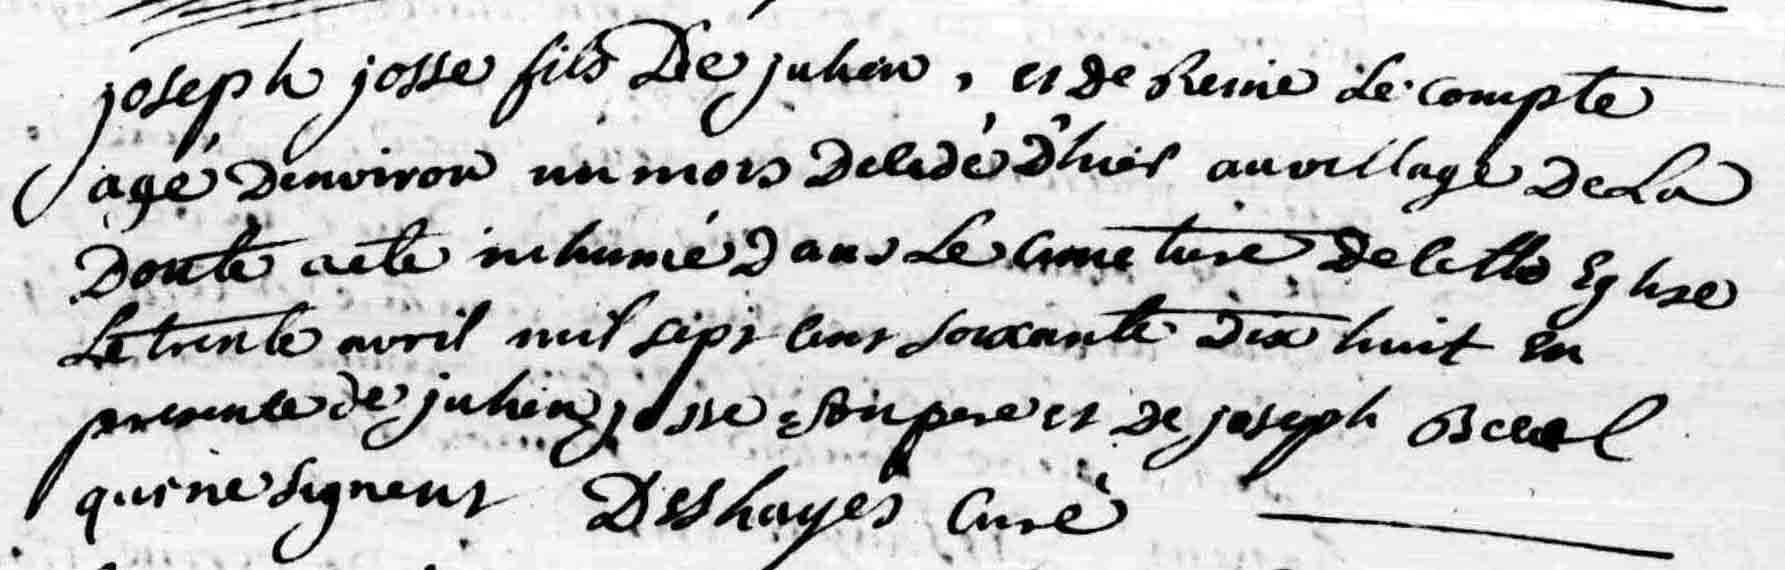 joseph josse fils De julien, et de Reine Le compte
agé Denviron un mois Deledé D'hier au village De La
Doute a ete inhumé Dans Le Cimetiere De cette Eglise
Le trente avril mil sept cent soixante Dix huit en
presence de julien josse son pere et De joseph
qui ne signent Deshayes Curé